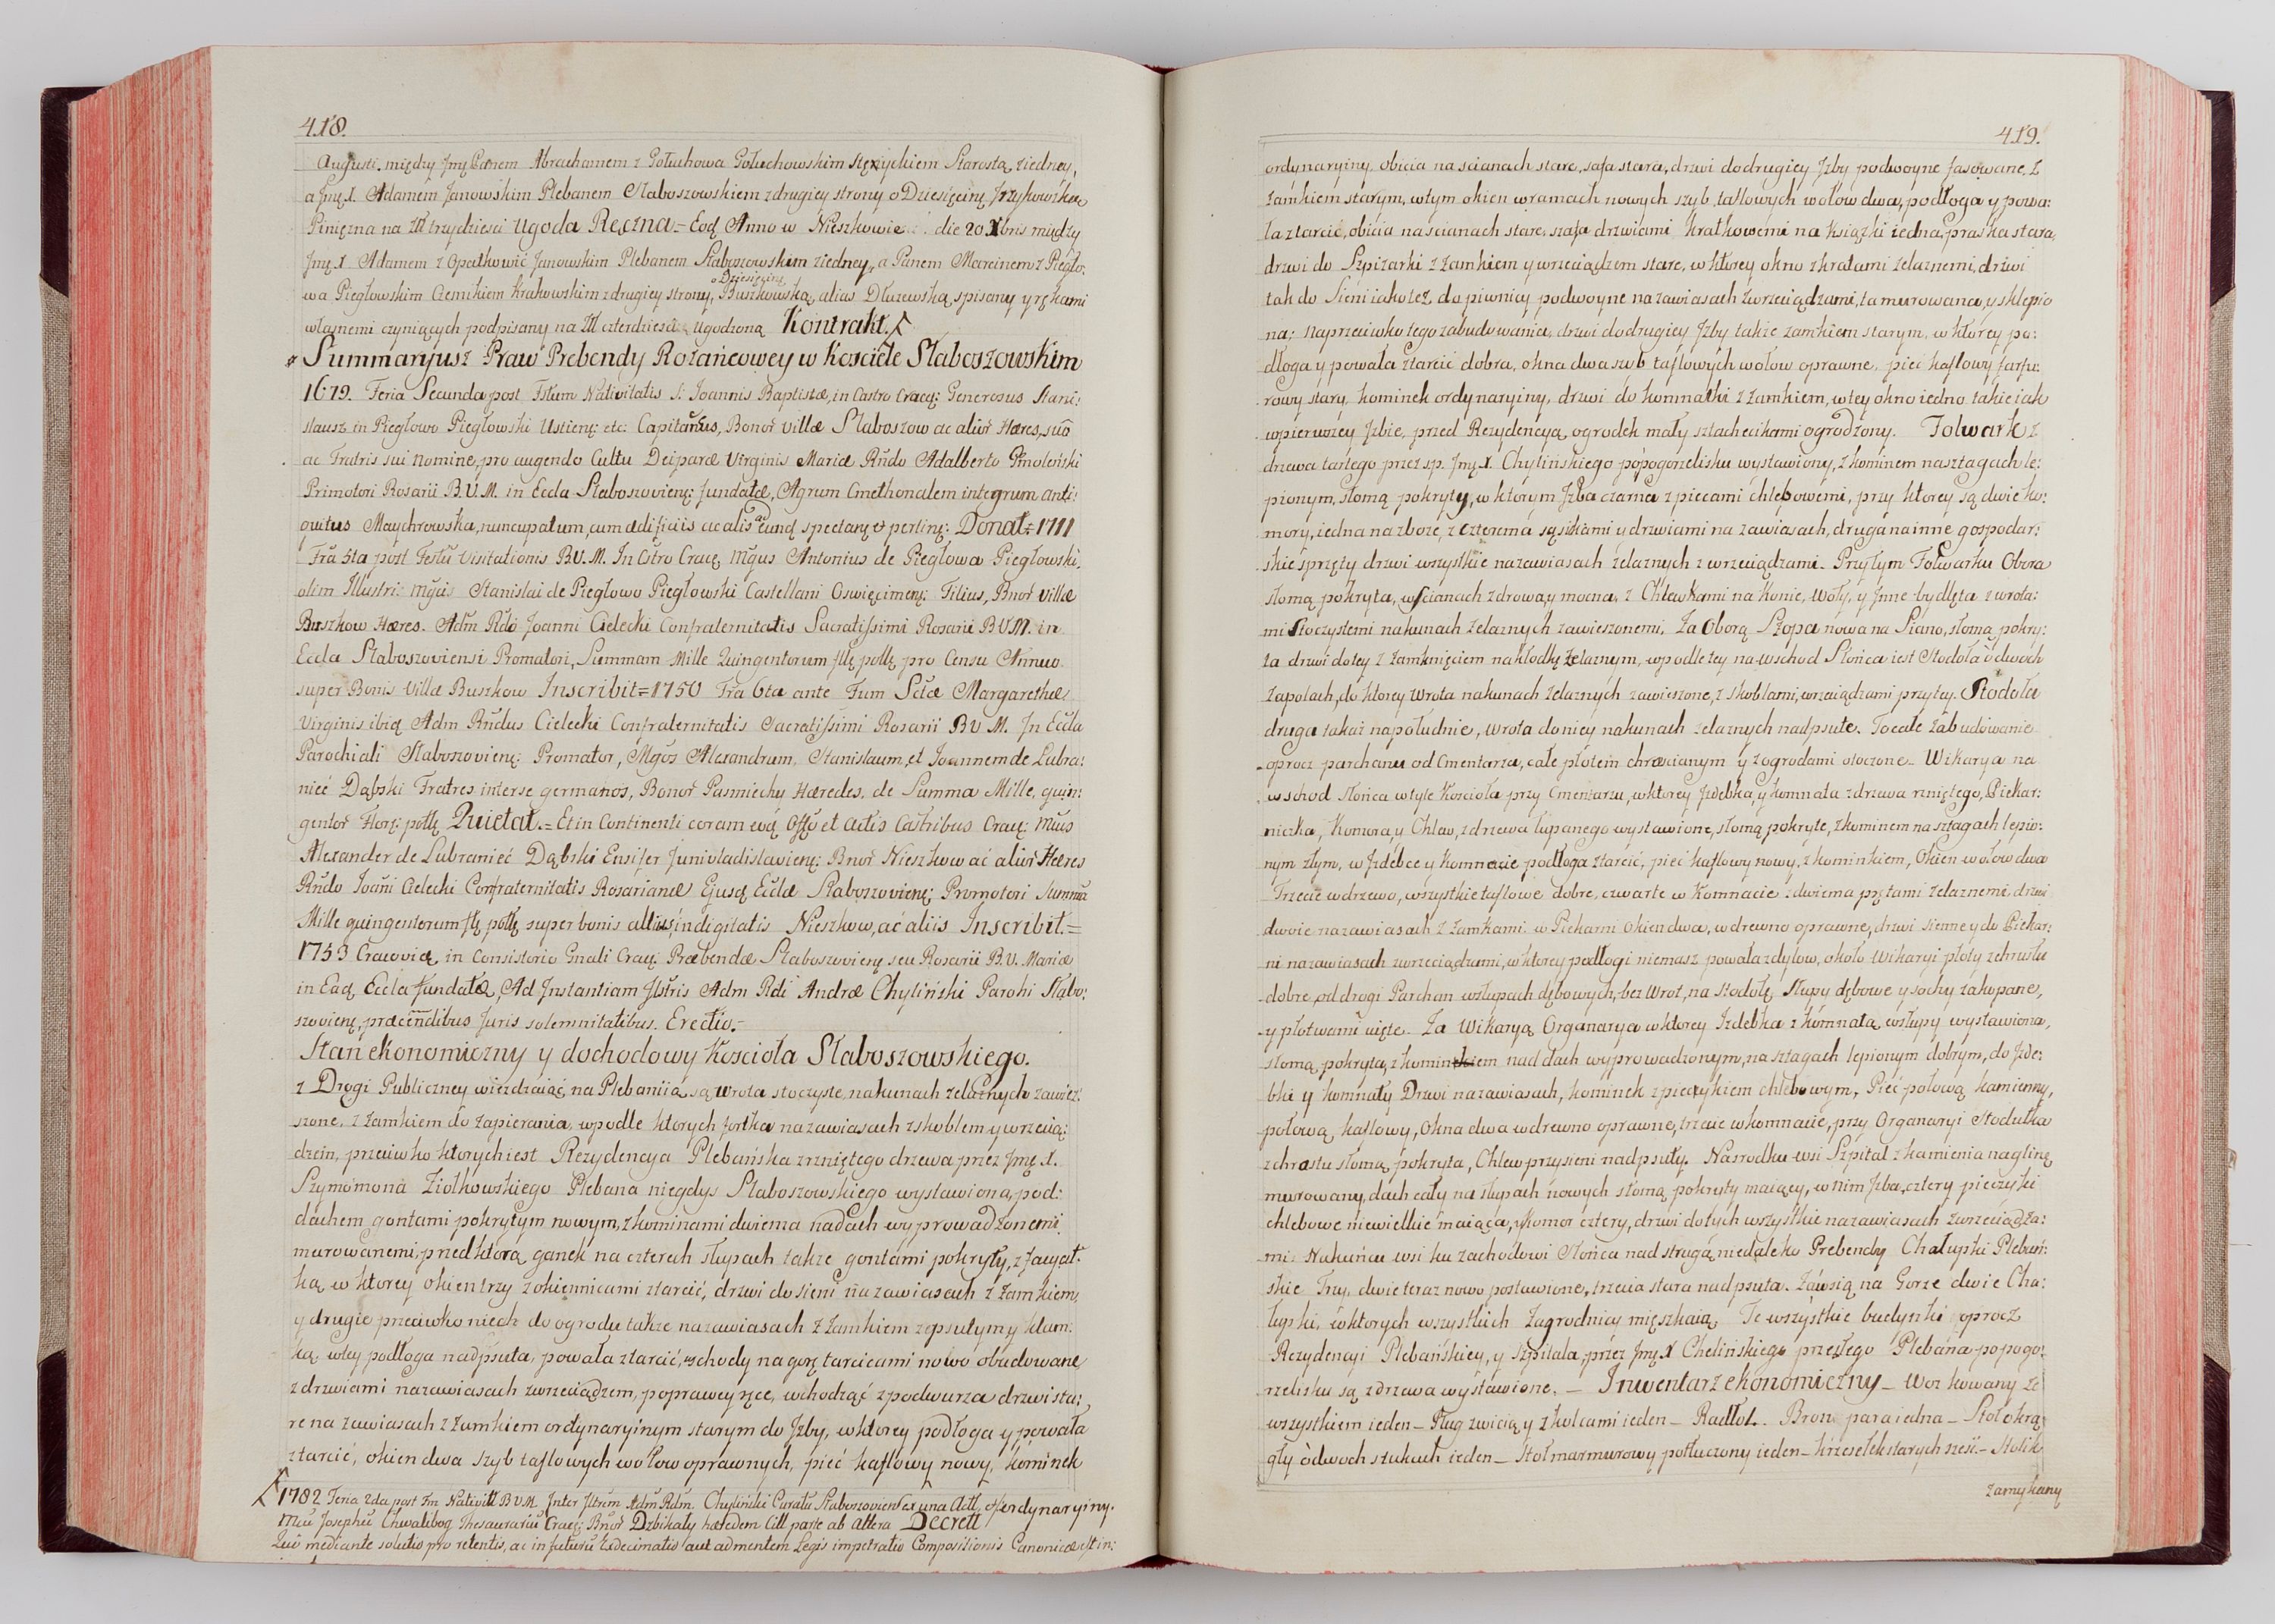 418.
Augusti. między Jmę Panem Abrachamem z Gołuchowa Gołuchowskim Stęzyckiem Starostą, ziedney,
a Jmę X. Adamem Janowskim Plebanem Słaboszowskiem zdrugiey strony o Dziesięcinę
Pinięzna na Ugoda Ręczna = Eod Anno w Nieszkowie die 20 Xbris między
Jmę X Adamem z Opatkowic Janowskim Plebanem Słaboszowskim ziedney, a Panem Marcinem z Piegło:
o Dziesięcinę
wa Piegłowskim Czesnikiem Krakowskim zdrugiey strony, Buszkowską, alias Dłuzewską, spisany y rękami
własnemi czyniących podpisany na czterdziesci ugodzoną Kontrakt.
Summaryusz Praw Prebendy Rozańcowey w Kosciele Słaboszowskim
1679. Feria Secunda post Fstum Nativitatis S: Joannis Baptistæ, in Castro Cracę: Generosus Stani:
slausz in Piegłowo Piegłowski Ustienę: etc: Capitaneus, Bonor villæ Słaboszow ac alior Hæres, suo
ac Fratris sui Nomine, pro augendo Cultu Deiparæ Virginis Mariæ Rndo Adalberto Smoleński
Primotori Rosarii B.V.M. in Eccla Słaboszovienę: fundatæ, Agrum Cmethonalem integrum anti:
quitus Maychrowska, nuncupatum, cum ædificiis ac aliis ad eund spectanę et pertinę: Donat = 1711
Fra 5ta post Festu Visitationis B.V.M. In Cstro Cracę Mgus Antonius de Piegłowa Piegłowski,
olim Illustri: Mgci Stanislai de Piegłowo Piegłowski Castellani Oswięcimenę: Filius, Bnor villæ
Buszkow Hæres. Adm Rdo Joanni Cielecki Confraternitatis Sacratissimi Rosarii B.V.M. in
Eccla Słaboszoviensi Promotori, Summam Mille Quingentorum flę pollę pro Censu Annuo
super Bonis Villæ Buszkow Inscribit = 1750 Fra 6ta ante Fum Sctæ Margarethæ
Virginis ibid Adm Rndus Cielecki Confraternitatis Sacratissimi Rosarii B.V.M. In Eccla
Parochiali Słaboszovienę: Promotor, Mgos Alexandrum, Stanislaum, et Joannem de Lubra:
nieć Dąbski Fratres interse germanos, Bonor Pasmiechy Hæredes, de Summa Mille, quin:
gentor Florę: pollę Quietat. = Et in Continenti coram eod Offo et Actis Castribus Cracę: Mcus
Alexander de Lubranieć Dąbski Ensifer Junivladislavienę: Bnor Nieszkow ac alior Hæres
Rndo Joani Cielecki Confraternitatis Rosarianæ Ejusd Eclæ Słaboszovienę: Promotori Summa
Mille quingentorum flę pollę super bonis indigitatis Nieszkow, ac aliis Inscribit. =
1753 Cracoviæ, in Consistorio Gnali Cracę: Præbendæ Słaboszovienę seu Rosarii B.V. Mariæ
in Ead Eccla fundatæ, Ad Instantiam Jllstris Adm Rdi Andræ Chyliński Parohi Słabo:
szovienę, præcendibus Juris solemnitatibus. Erectio. =
Stan ekonomiczny y dochodowy Koscioła Słaboszowskiego.
z Drogi Publiczney wierdzaiąc, na Plebaniią, są wrota stoczyste, nakunach zelaznych zawiez:
szone, z zamkiem do zapierania, wpodle ktorych fortka nazawiasach z skoblem y wrzecią:
dzem, przeciwko ktorych iest Rezydencya Plebańska zrzniętego drzewa przez Jmę X.
Szymomona Ziołkowskiego Plebana niegdys Słaboszowskiego wystawiona, pod:
dachem gontami pokrytym nowym, z kominami dwiema nadach wyprowadzonemi
murowanemi, przed którą ganek na czterech słupach także gontami pokryty, z facyat:
ką, w ktorey okien trzy z okiennicami ztarcić, drzwi do sieni na zawiasach z zamkiem,
y drugie przeciwko niech do ogrodu takze nazawiasach z zamkiem zepsutym y klam:
ką, wtey podłoga nadpsuta, powała ztarcić, wschody na gorę tarcicami nowo obudowane
z drzwiami nazawiasach zwrzeciądzem, poprawey ręce, wchodząć z podwurza drzwi sta:
re na zawiasach z zamkiem ordynaryinym starym do Jzby, wktorey podłoga y powała
ztarcić, okien dwa szyb taflowych wołow oprawnych, piec kaflowy nowy, kominek
ordynaryiny.
1782 Feria 2da post Fm Nativitt B.V.M. Inter Jllrem Adm Rdm. Chyliński Curatu Słaboszovien ex una Actt, et
Mcu Josephu Chwalibog Thesaurariu Cracę: Bnor Dzbikały hæredem Citt parte ab Altera Decrett
Quo mediante solutio pro retentis, ac in futuru Decimatio aut ad mentem Legis impetratio Compositionis Canonicæ est in:
419.
ordynaryiny, obicia na scianach stare, safa stara, drzwi dodrugiey Jzby podwoyne fasowane, z
zamkiem starym, wtym okien wramach nowych szyb, taflowych wołow dwa, podłoga y powa:
ła ztarcić, obicia na scianach stare, szafa drzwiami kratkowemi na Książki iedna, praska stara,
drzwi do Szpizarki z zamkiem y wrzeciądzem stare, w ktorey okno zkratami zelaznemi, drzwi
tak do Sieni iako tez, do piwnicy podwoyne na zawiasach zwrzeciądzami, ta murowana, y sklepio
na; naprzeciwko tego zabudowania, drzwi dodrugiey Jzby takze zamkiem starym, w ktorey po:
dłoga y powała ztarcić dobra, okna dwa szyb taflowych wołow oprawne, piec kaflowy farfu:
rowy stary, kominek ordynaryiny, drzwi do kommatki z zamkiem, w tey okno iedno takie iak
wpierwszey Jzbie, przed Rezydencyą, ogrodek mały sztachecikami ogrodzony. Folwark z
drzewa tartego przez sp. Jmę X. Chylińskiego po pogorzelisku wystawiony, z kominem na sztagach le:
pionym, słomą pokryty, w którym Jzba czarna z piecami chlebowemi, przy ktorey są dwie ko:
mory, iedna na zboze, z czterema sąsiekami y drzwiami na zawiasach, druga na inne gospodar:
skie sprzęty drzwi wszystkie nazawiasach zelaznych z wrzeciądzami. Przytym Folwarku Obora
słomą pokryta, w scianach zdrowa, y mocna, z Chlewkami na Konie, Woły, y Jnne bydlęta z wrota:
mi stoczystemi na kunach zelaznych zawieszonemi, Za Oborą Szopa nowa na Siano, słomą pokry:
ta drzwi do tey z zamknięciem na kłodkę zelaznym, wpodle tey na wschod Słońca iest Stodoła o dwoch
zapolach, do ktorey wrota nakunach zelaznych zawieszone, z skoblami, wrzeciądzami przy tey. Stodoła
druga takaz na południe, wrota do niey nakunach zelaznych nadpsute. To całe zabudowanie
oprocz parchanu od Cmentarza, całe płotem chruscianym y zogrodami otoczone. Wikarya na
wschod Słońca wtyle Koscioła przy Cmentarzu, wktorey Jzdebka, y komnata zdrzewa rzniętego, Piekar:
niczka, Komora, y Chlew, zdrzewa łupanego wystawione, słomą pokryte, z kominem na sztagach lepio:
nym złym, w Jzdebce y Komnacie podłoga ztarcić, piec kaflowy nowy, z kominkiem, Okien w ołow dwa
Trzecie wdrzewo, wszystkie taflowe dobre, czwarte w Komnacie zdwiema prętami zelaznemi, drzwi
dwoie nazawiasach z zamkami. w Piekarni Okien dwa, w drewno oprawne, drzwi sienne y do Piekar:
ni nazawiasach zwrzeciądzami, wktorey podłogi niemasz powała zdylow, około Wikaryi płoty zchrustu
dobre, od drogi Parchan wsłupach dębowych, bez Wrot, na Stodołę Słupy dębowe y sochy zakopane,
y płotwami ujęte. Za Wikaryą Organarya wktorey Izdebka z komnatą, wsłupy wystawiona,
słomą, pokryta, z kominkiem nad dach wyprowadzonym, na sztagach lepionym dobrym, do Jzde:
bki y komnaty Drzwi nazawiasach, kominek zpiecykiem chlebowym, Piec połową kamienny,
połową kaflowy, Okna dwa wdrewno oprawne, trzecie wkomnacie, przy Organaryi Stodułka
zchrostu słomą pokryta, Chlew przysieni nadpsuty. Nasrodku wsi Szpital zkamienia naglinę
murowany, dach cały na słupach nowych słomą pokryty maiący, w nim Jzba, cztery pieczyki
chlebowe niewielkie maiąca, Komor cztery, drzwi dotych wszystkie nazawiasach zwrzeciądza:
mi. Nakuńcu wsi ku zachodowi Słońca nad strugą niedaleko Prebendy Chałupki Plebań:
skie Trzy, dwie teraz nowo postawione, trzecia stara nadpsuta. Zawsią na Gorze dwie Cha:
łupki, wktorych wszystkich Zagrodnicy mięszkaią Te wszystkie budynki oprocz
Rezydencyi Plebańskiey, y Szpitala, przez Jmę X Chelińskiego przeszłego Plebana po pogo:
rzelisku są zdrzewa wystawione. — Jnwentarz ekonomiczny — Woz kowany ze
wszystkiem ieden — Pług zwicią y zkolcami ieden — Radło 1. Bron para iedna — Stoł okrą
gły o dwoch sztukach ieden — Stoł marmurowy potłuczony ieden — krzesełek starych sześć — Stolik
zamykany